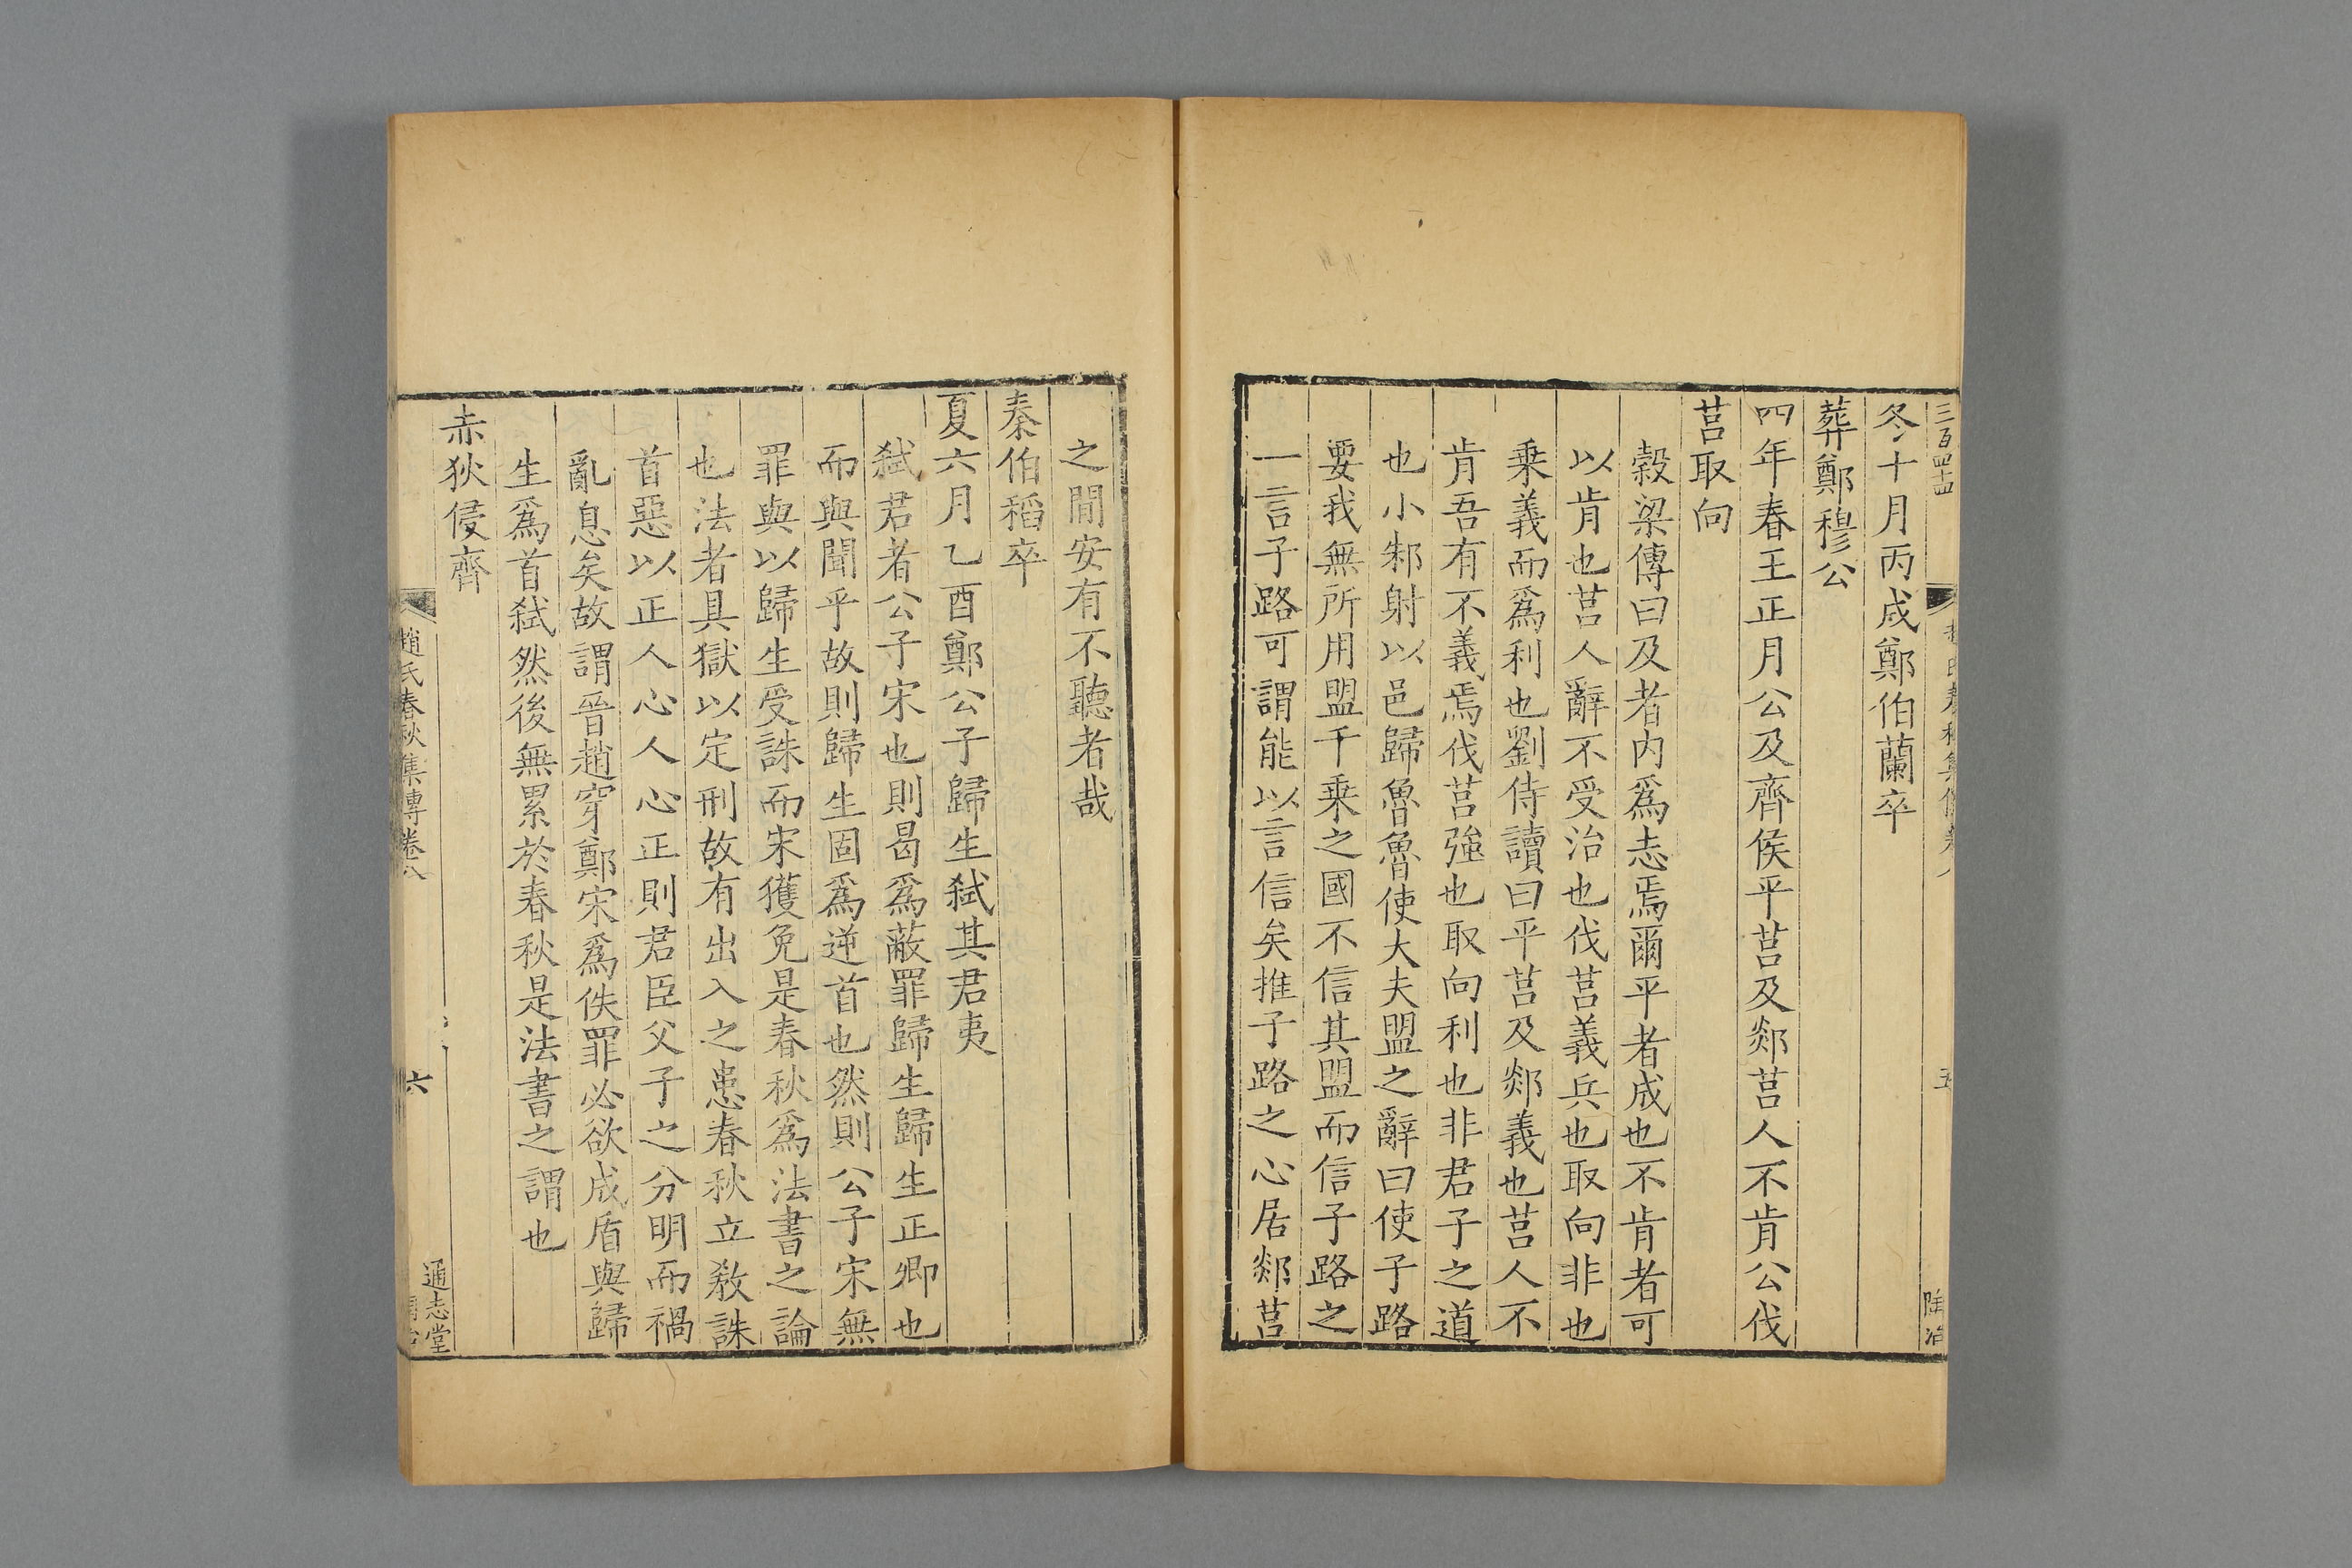 三百四十四
冬十月丙戌鄭伯蘭卒
葬鄭穆公
四年春王正月公及齊侯平莒及郯莒人不肯公伐
莒取向
穀梁傳曰及者内爲志焉爾平者成也不肯者可
以肯也莒人辭不受治也伐莒義兵也取向非也
乗義而爲利也劉侍讀曰平莒及郯義也莒人不
肯吾有不義焉伐莒強也取向利也非君子之道
也小邾射以邑歸魯魯使大夫盟之辭曰使子路
要我無所用盟千乗之國不信其盟而信子路之
一言子路可謂能以言信矣推子路之心居郯莒
之間安有不聽者哉
秦伯稻卒
夏六月乙酉鄭公子歸生弑其君夷
弑君者公子宋也則曷爲蔽罪歸生歸生正卿也
而與聞乎故則歸生固爲逆首也然則公子宋無
罪與以歸生受誅而宋獲免是春秋爲法書之論
也法者具獄以定刑故有出入之患春秋立敎誅
首惡以正人心人心正則君臣父子之分明而禍
亂息矣故謂晉趙穿鄭宋爲佚罪必欲成盾與歸
生爲首弑然後無累於春秋是法書之謂也
赤狄侵齊
趙氏春秋集傳卷八
六
通志堂